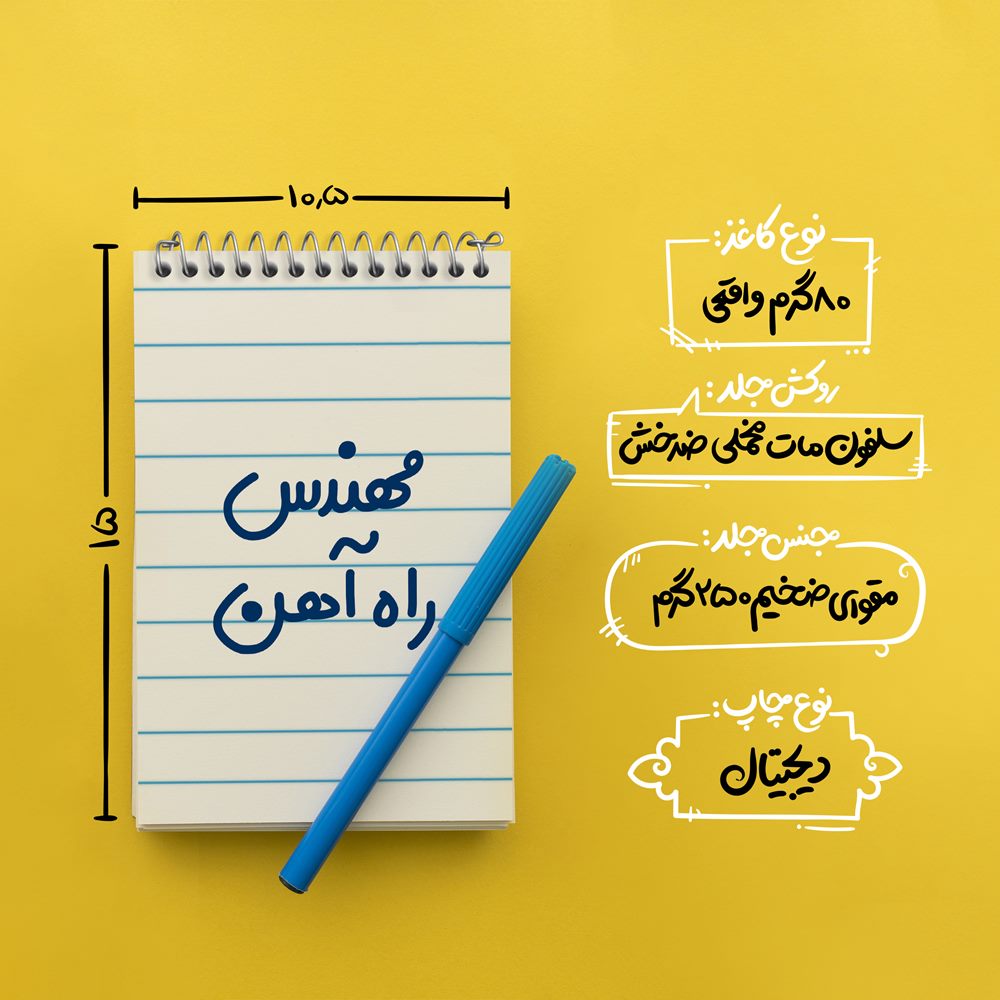 ۱۰٫۵
۱۵
مهندس
راه آهن
نوع کاغذ:
۸۰ گرم واقعی
روکش جلد:
سلفون مات مخملی ضدخش
جنس جلد:
مقوای ضخیم ۲۵۰ گرم
نوع چاپ:
دیجیتال